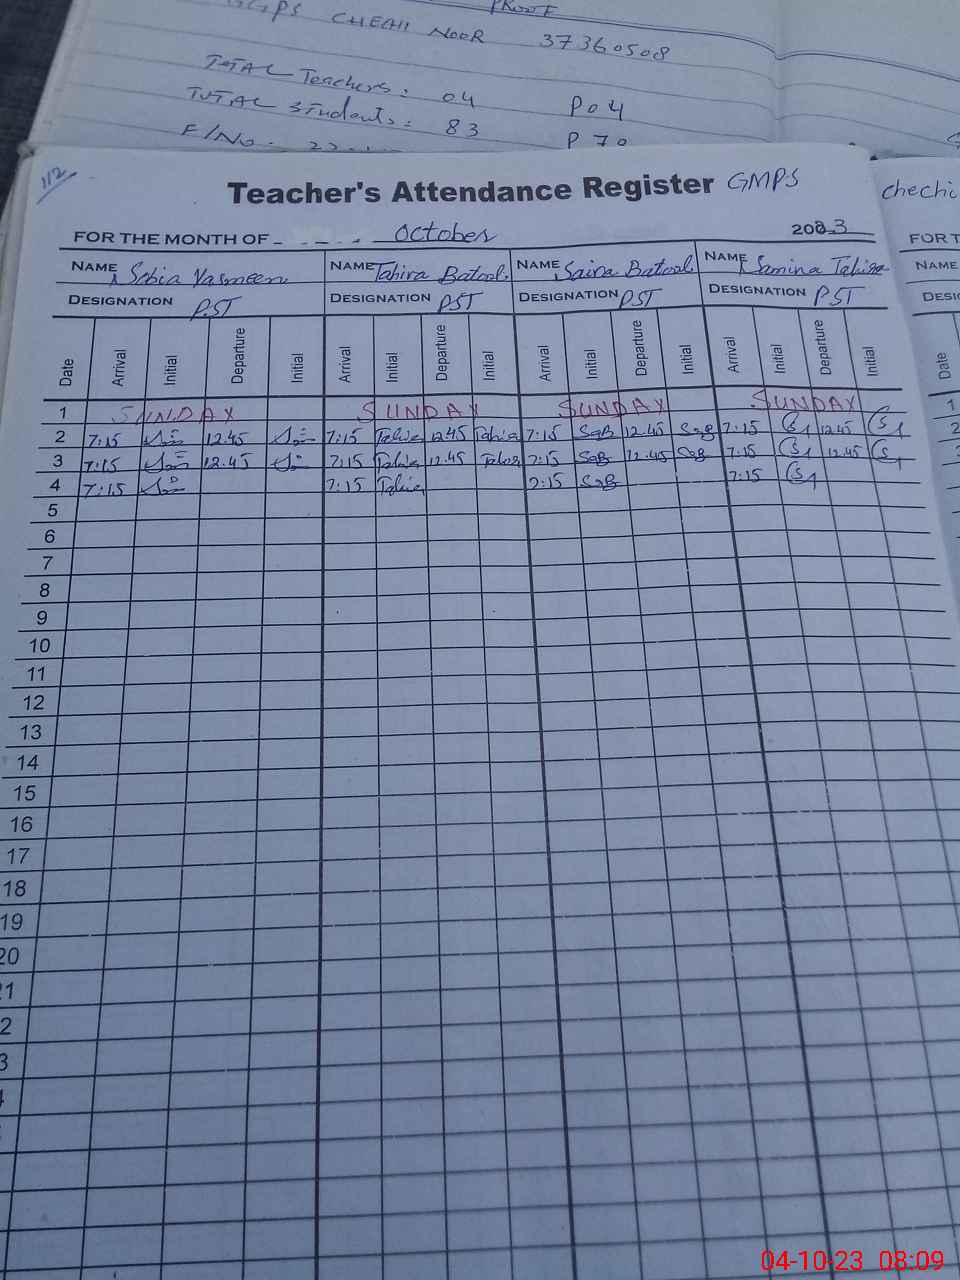 PROOF
GMPS CHECHI NOOR 37360508
TOTAL Teachers: 04 P 04
TOTAL Students: 83 P 70
F/No.
112
Teacher's Attendance Register GMPS
chechi
FOR THE MONTH OF October 2023
FOR T
NAME Sobia Yasmeen NAME Tahira Batool. NAME Saira Batool. NAME Samina Tahira
NAME
DESIGNATION PST DESIGNATION PST DESIGNATION PST DESIGNATION PST
DESIG
Date Arrival Initial Departure Initial Arrival Initial Departure Initial Arrival Initial Departure Initial Arrival Initial Departure Initial
Date
1 SUNDAY SUNDAY SUNDAY SUNDAY 1
2 7:15 12.45 7:15 Tahira 12.45 Tahira 7:15 SaB 12.45 SaB 7:15 12.45 2
3 7:15 12.45 7:15 Tahira 12.45 Tahira 7:15 SaB 12.45 SaB 7:15 12.45
4 7:15 7:15 Tahira 7:15 SaB 7:15
5
6
7
8
9
10
11
12
13
14
15
16
17
18
19
20
21
2
3
04-10-23 08:09